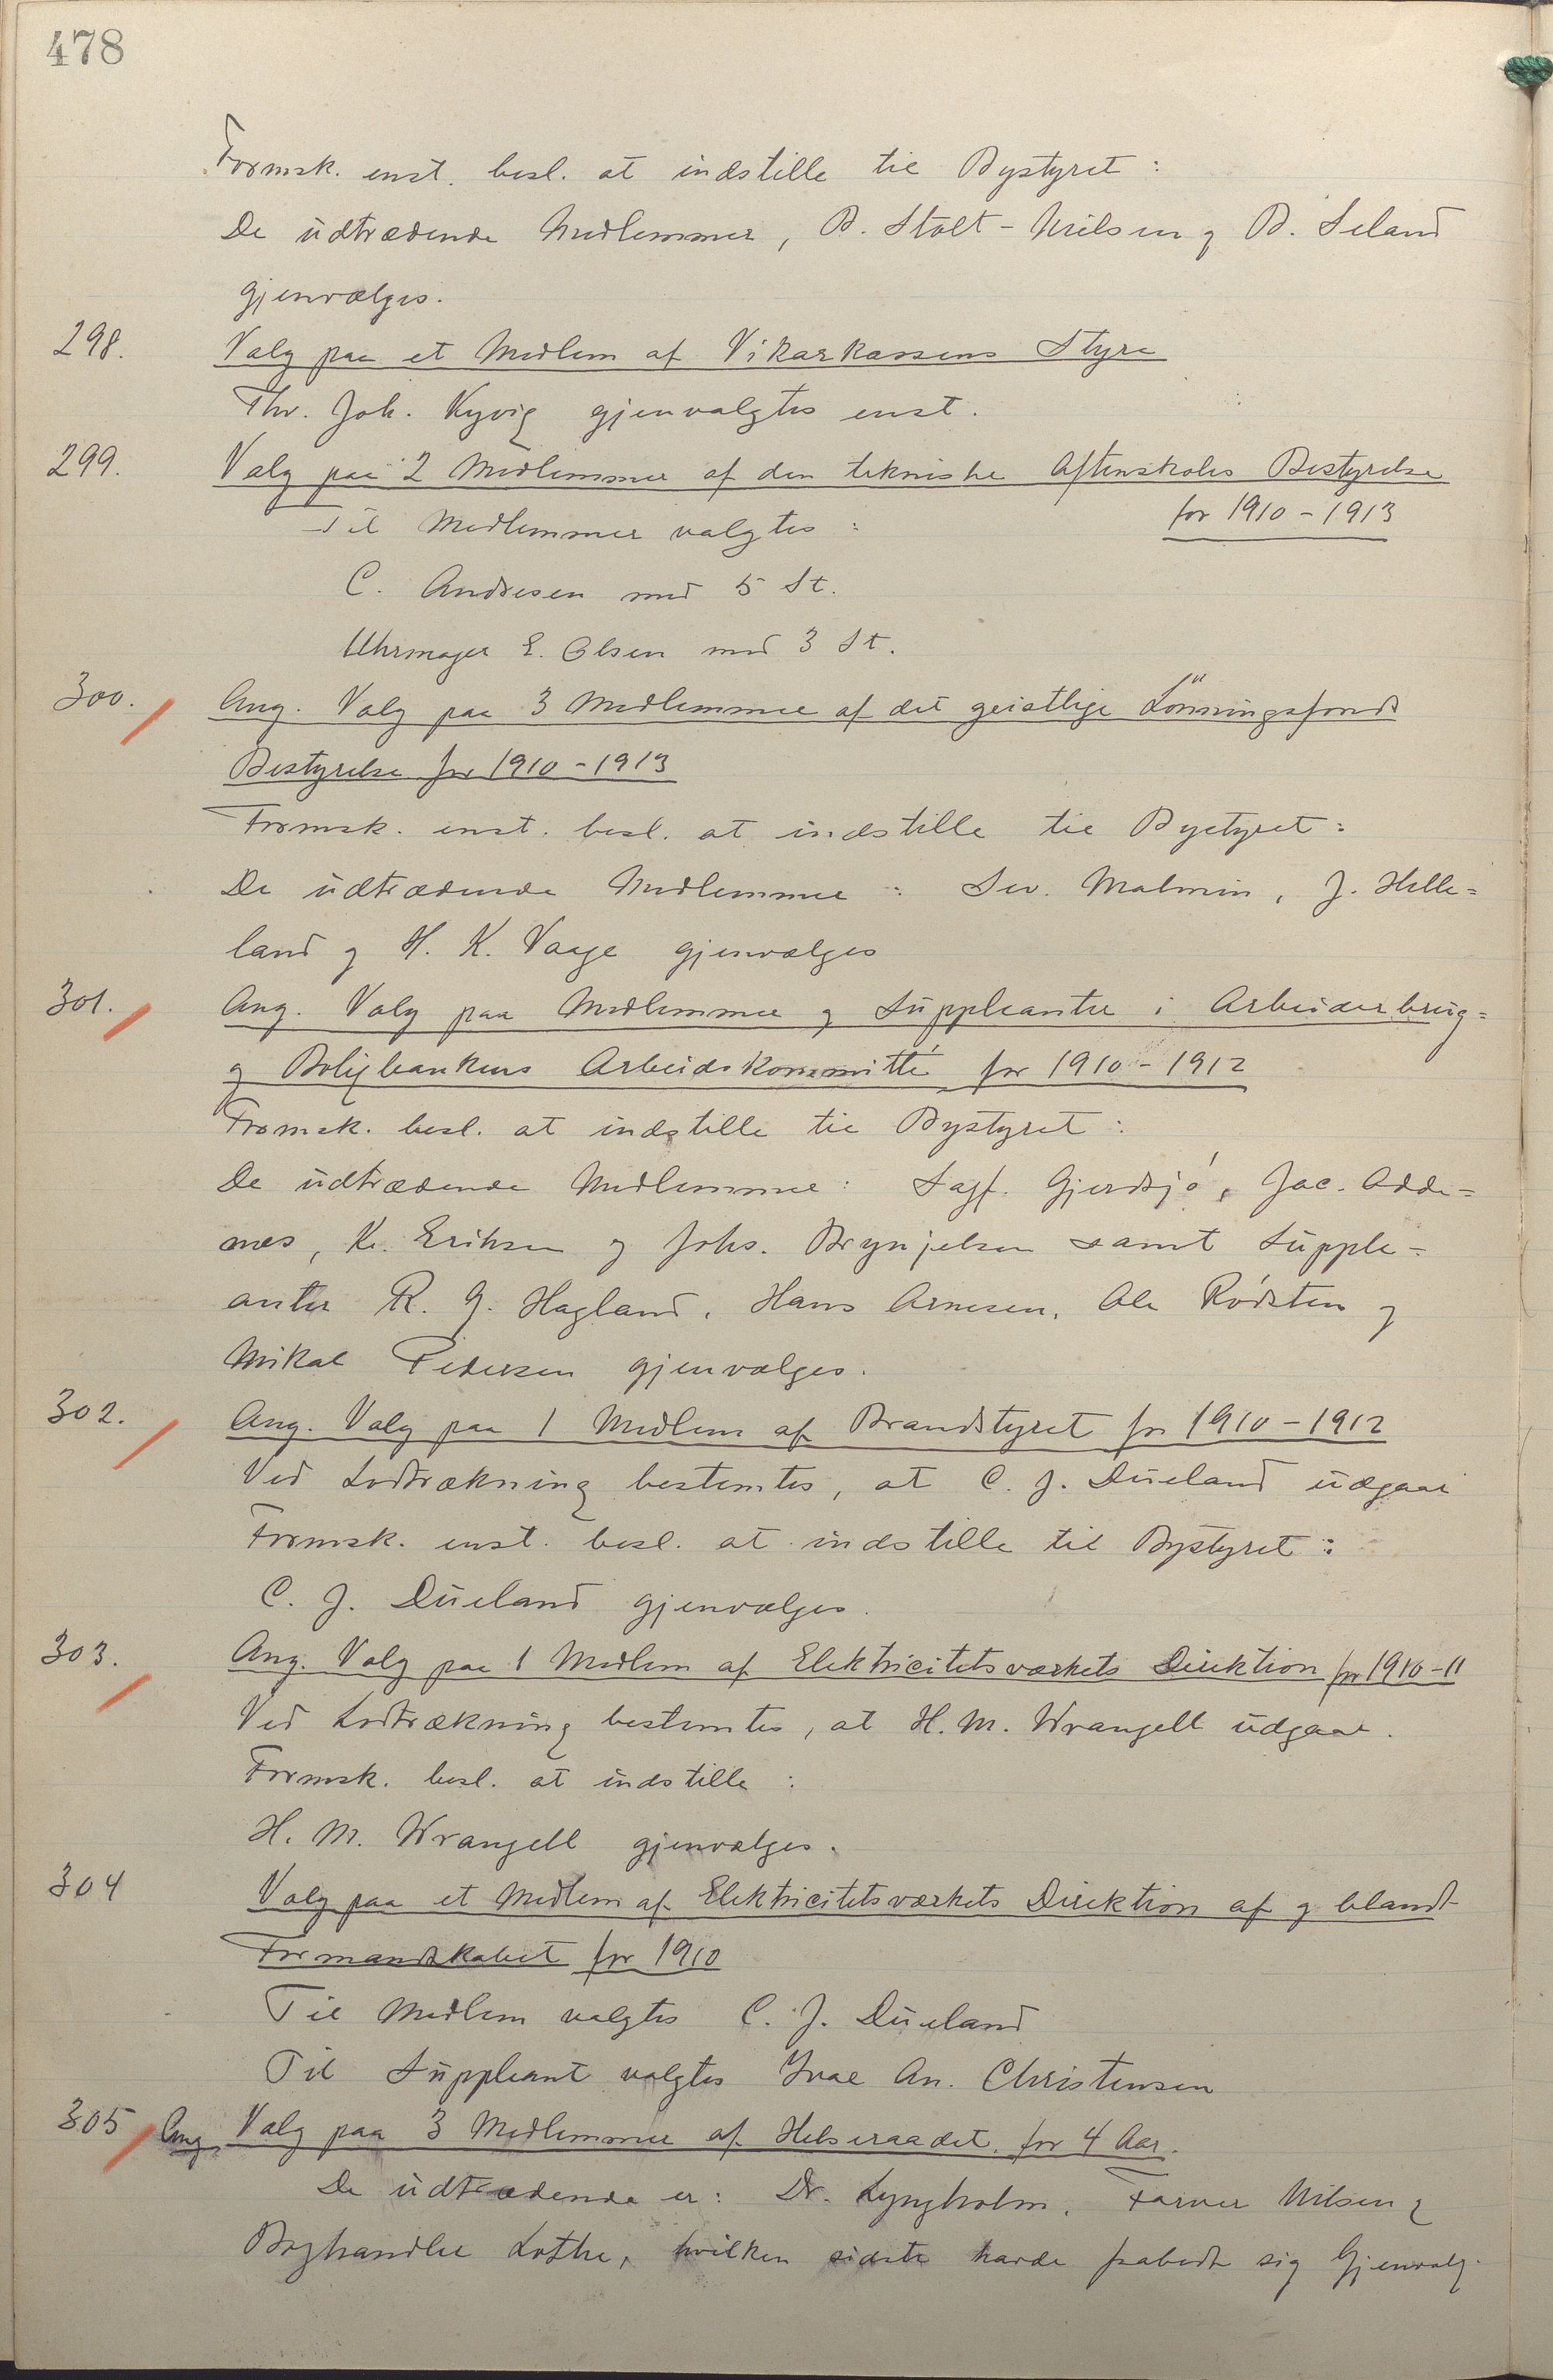 478
Formsk. enst. besl. at indstille til Bystyret:
De udtrædende Medlemmer, B. Stolt-Nielsen og B. Seland
gjenvælges.
298. Valg paa et Medlem af Vikarkassens Styre
Thv. Joh. Kyvig gjenvalgtes enst.
299. Valg paa 2 Medlemmer af den tekniske Aftenskoles Bestyrelse
for 1910-1913
Til Medlemmer valgtes:
C. Andresen med 5 St.
Uhrmager E. Olsen med 3 St.
300. Ang. Valg paa 3 Medlemmer af det geistlige Lönningsfonds
Bestyrelse for 1910-1913
Formsk. enst. besl. at indstille til Bystyret:
De udtrædende Medlemmer: Sev. Malmin, J. Helle=
land og H. K. Vaage gjenvælges
301. Ang. Valg paa Medlemmer og Suppleanter i Arbeiderbrug=
og Boligbankens Arbeidskommitté for 1910-1912
Formsk. besl. at indstille til Bystyret:
De udtrædende Medlemmer: Sagf. Gjerdsjó, Jac. Odde=
næs, Kr. Eriksen og Johs. Brynjelsen samt Supple=
anter R. G. Hagland, Hans Arnesen, Ole Ródsten og
Mikal Pedersen gjenvælges.
302. Ang. Valg paa 1 Medlem af Brandstyret for 1910-1912
Ved Lodtrækning bestemtes, at C. J. Dueland udgaar
Formsk. enst. besl. at indstille til Bystyret:
C. J. Dueland gjenvælges.
303. Ang. Valg paa 1 Medlem af Elektricitetsværkets Direktion for 1910-11
Ved Lodtrækning bestemtes, at H. M. Wrangell udgaar.
Formsk. besl. at indstille:
H. M. Wrangell gjenvælges.
304 Valg paa et Medlem af Elektricitetsværkets Direktion af og blandt
Formandskabet for 1910
Til Medlem valgtes C. J. Dueland
Til Suppleant valgtes Ivar An. Christensen
305 Ang. Valg paa 3 Medlemmer af Helseraadet for 4 Aar.
De udtrædende er: Dr. Lyngholm, Farver Nilsen og
Boghandler Lothe, hvilken sidste havde frabedt sig Gjenvalg.